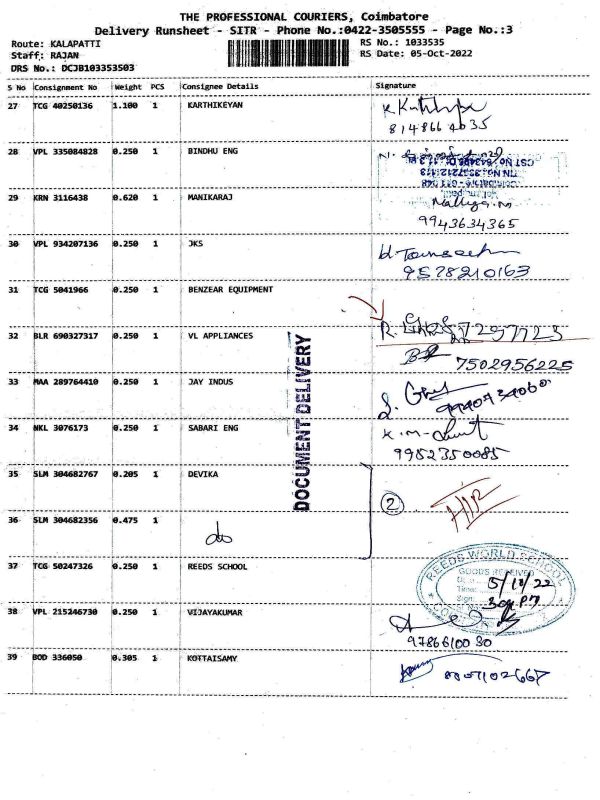 THE PROFESSIONAL COURIERS, Coimbatore
Delivery Runsheet - SITR - Phone No.:0422-3505555 - Page No.:3
Route: KALAPATTI
RS No.: 1033535
Staff: RAJAN
RS Date: 05-Oct-2022
DRS No.: DCJB103353503
S No Consignment No Weight PCS Consignee Details Signature
27 TCG 40250136 1.100 1 KARTHIKEYAN
8148664035
28 VPL 335084828 0.250 1 BINDHU ENG
29 KRN 3116438 0.620 1 MANIKARAJ
9943634365
30 VPL 934207136 0.250 1 JKS
9578210163
31 TCG 5041966 0.250 1 BENZEAR EQUIPMENT
32 BLR 690327317 0.250 1 VL APPLIANCES
7502956225
33 MAA 289764410 0.250 1 JAY INDUS
34 NKL 3076173 0.250 1 SABARI ENG
9952350085
DOCUMENT DELIVERY
35 SLM 304682767 0.205 1 DEVIKA
2
36 SLM 304682356 0.475 1 do
37 TCG 50247326 0.250 1 REEDS SCHOOL
REEDS WORLD SCHOOL
GOODS RECEIVED
38 VPL 215246730 0.250 1 VIJAYAKUMAR
9786610030
39 BOD 336050 0.305 1 KOTTAISAMY